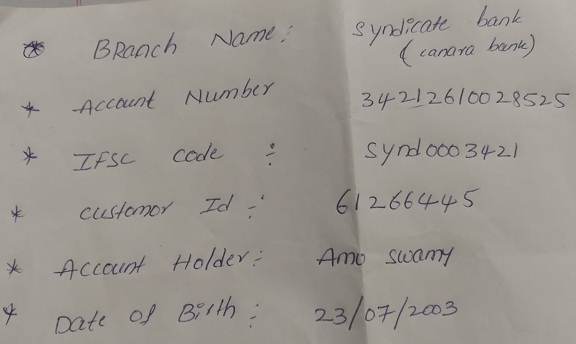 * Branch Name: Syndicate bank
(canara bank)
* Account Number 34212610028525
* IFSC code ÷ Synd0003421
* Customor Id ÷ 61266445
* Account Holder÷ Amo swamy
* Date of Birth ÷ 23/07/2003